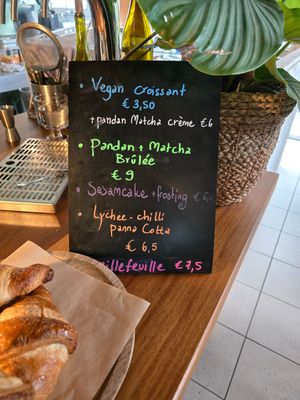 • Vegan Croissant
€ 3,50
+ pandan Matcha crème €6
• Pandan + Matcha
Brûlée
€ 9
• Sesamcake + frosting € 5,-
• Lychee - chilli
panna Cotta
€ 6,5
illefeuille € 7,5